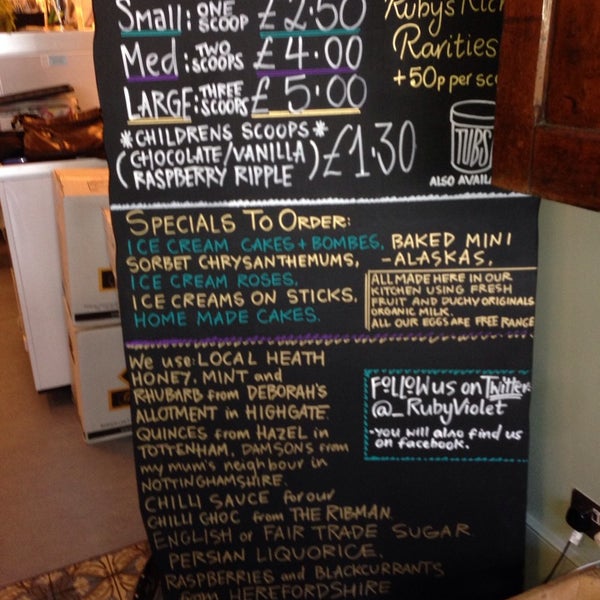 SMALL: ONE SCOOP £2.50
MED: TWO SCOOPS £4.00
LARGE: THREE SCOOPS £5.00
*CHILDRENS SCOOPS*
(CHOCOLATE/VANILLA) £1.30
RASPBERRY RIPPLE
Rubys
Rarities
+50p per
TUBS
ALSO
SPECIALS TO ORDER:
ICE CREAM CAKES + BOMBES, BAKED MINI
SORBET CHRYSANTHEMUMS, -ALASKAS,
ICE CREAM ROSES,
ICE CREAMS ON STICKS,
HOME MADE CAKES.
ALL MADE HERE IN OUR
KITCHEN USING FRESH
FRUIT AND DUCHY ORIGINALS
ORGANIC MILK.
ALL OUR EGGS ARE FREE RANGE
We use: LOCAL HEATH
HONEY, MINT and
RHUBARB from DEBORAH'S
ALLOTMENT in HIGHGATE
QUINCES from HAZEL in
TOTTENHAM, DAMSONS from
my mum's neighbour in
NOTTINGHAMSHIRE.
CHILLI SAUCE for our
CHILLI CHOC from THE RIBMAN.
ENGLISH or FAIR TRADE SUGAR
PERSIAN LIQUORICE.
RASPBERRIES and BLACKCURRANTS
from HEREFORDSHIRE
FOLLOW us on Twitter
@_RubyViolet
-you will also find us
on facebook.